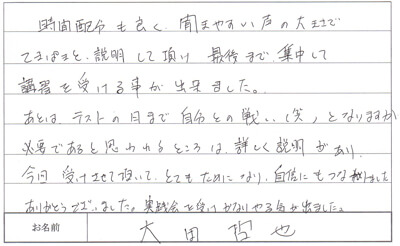 時間配分も良く、聞きやすい声の大きさで
てきぱきと、説明して頂け 最後まで、集中して
講習を受ける事が出来ました。
あとは、テストの日まで自分との戦い(笑)となりますが
必要であると思われるところは、詳しく説明があり、
今回 受けさせて頂いて、とてもためになり、自信にもつながりました
ありがとうございました。実践会を受けかなりやる気が出ました。
お名前 大田 哲也